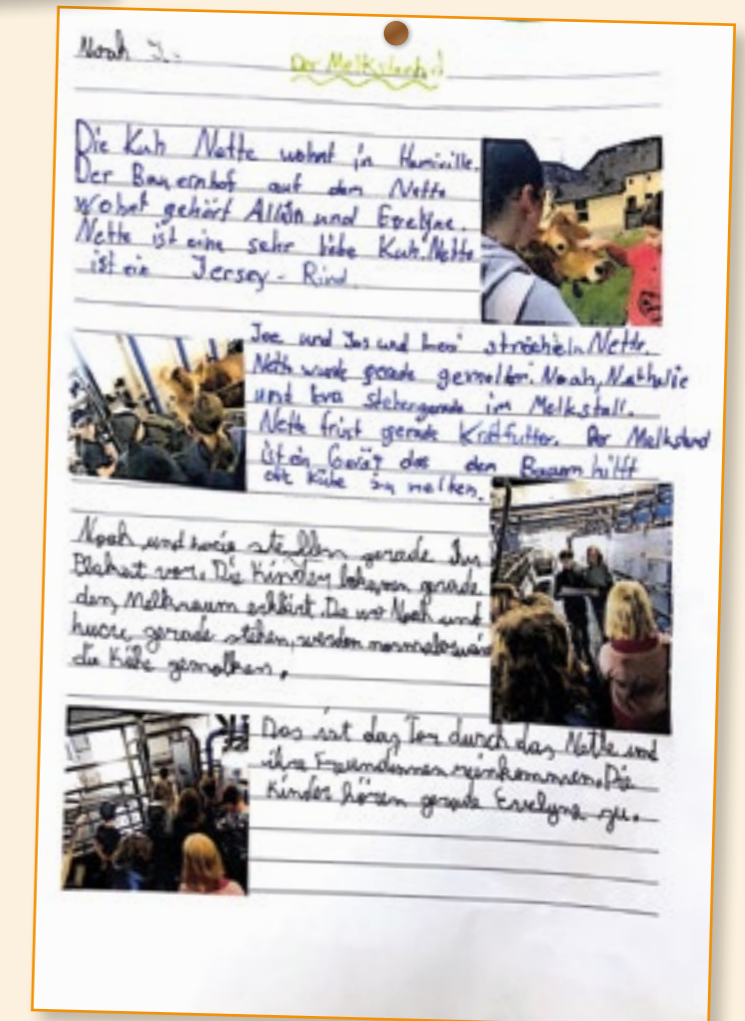 Noah J.
Der Melkstand
Die Kuh Nette wohnt in Hamiville.
Der Bauernhof auf dem Nette
wohnt gehört Allän und Evelyne.
Nette ist eine sehr liebe Kuh. Nette
ist ein Jersey-Rind.
Joe und Jos und streicheln Nette.
wurde gerade gemolken. Noah, Nathalie
und Eva stehen gerade im Melkstall.
Nette frist gerade Kraftfutter. Der Melkstand
ist ein Gerät das den Bauern hilft
die Kühe zu melken.
Noah und stellen gerade Ihr
Plakat vor. Die Kinder bekommen gerade
den Melkraum erklärt. Da wo Noah und
gerade stehen, werden normalerweise
die Kühe gemolken.
Das ist das Tor durch das Nette und
ihre Freundinnen reinkommen. Die
Kinder hören gerade Evelyne zu.